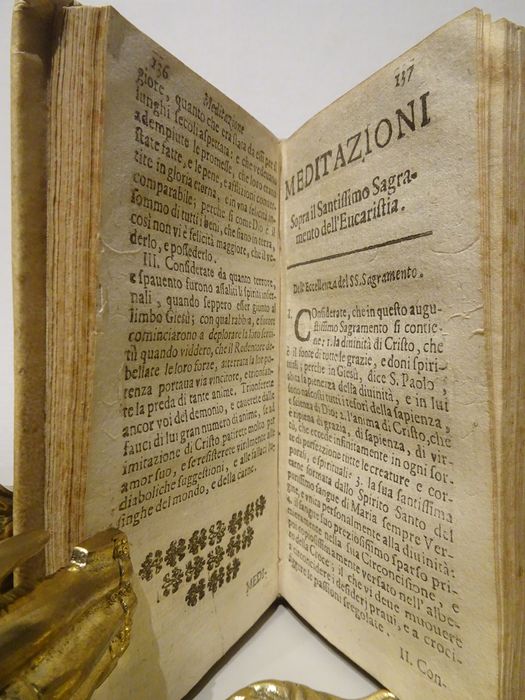 136 Meditazione
giore, quanto che era stata da essi per sì
lunghi secoli aspettata: e che vedeano
adempiute le promesse, che loro erano
state fatte, e le pene, e afflizioni conuer-
tite in gloria eterna, e in vna felicità in-
comparabile: perche si come Dio è il
sommo di tutti i beni, che siano in terra,
così non vi è felicità maggiore, che il ve-
derlo, e possederlo.
III. Considerate da quanto terrore,
e spauento furono assaliti li spiriti infer-
nali, quando seppero esser giunto al
limbo Giesù; con qual rabbia, e furore
cominciarono a deplorare la loro
tù quando viddero, che il Redentore de-
bellate le loro forze, atterrata la lor po-
tenza portaua via vincitore, e trionfan-
te la preda di tante anime. Trionferete
ancor voi del demonio, e cauerete dalle
fauci di lui gran numero di anime, se ad
imitazione di Cristo patirete molto per
amor suo, e se resisterete virilmente alle
diaboliche suggestioni, e alle fallaci lu-
singhe del mondo, e della carne.
MEDI-
137
MEDITAZIONI
Sopra il Santissimo Sagra-
mento dell'Eucaristia.
Dell'Eccellenza del SS. Sagramento.
I. COnsiderate, che in questo augu-
stissimo Sagramento si contie-
ne; 1. la diuinità di Cristo, che
è il fonte di tutte le grazie, e doni spiri-
tuali; perche in Giesù, dice S. Paolo,
abita la pienezza della diuinità, e in lui
sono nascosti tutti i tesori della sapienza,
e scienza di Dio: 2. l'anima di Cristo, che
è ripiena di grazia, di sapienza, di vir-
tù, che eccede infinitamente in ogni sor-
te di perfezione tutte le creature e cor-
porali, e spirituali: 3. la sua santissima
carne formata dallo Spirito Santo del
purissimo sangue di Maria sempre Ver-
gine, e vnita personalmente alla diuinità:
4. il sangue suo preziosissimo sparso pri-
mieramente nella sua Circoncisione, e
poi copiosamente versato nell'albe-
ro della Croce; il che vi deue muouere
a crocifiggere i desiderj praui, e a croci-
figgere le passioni sregolate.
II. Con-